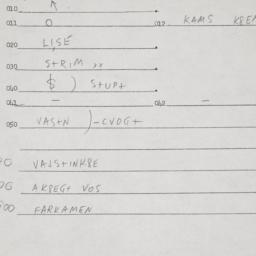 010
011 O 012 KAMS KBEN
020 LISE
030 STRIM
040 $ ) STUPT
041 — 042 —
050 VASTN )-CVOGT
VAJSTINKBE
AKBEGT VOS
FARKAMEN